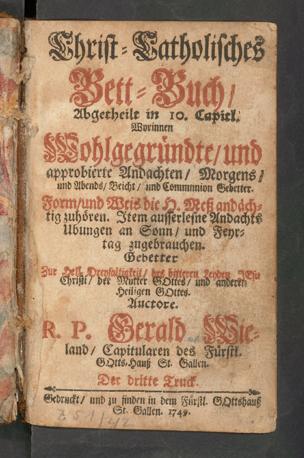 Christ-Catholisches
Bett-Buch/
Abgetheilt in 10. Capitl.
Worinnen
Wohlgegründte/und
approbierte Andachten/ Morgens/
und Abends/ Beicht/ und Communion Gebetter.
Form/und Weis die H. Meß andäch-
tig zuhören. Item ausserlesne Andachts
Ubungen an Sonn/ und Feyr-
tag zugebrauchen.
Gebetter
Zur Heil. Dreyfaltigkeit/ des bitteren Leyden
Christi/ der Mutter GOttes/ und anderen
Heiligen GOttes.
Auctore.
R. P. Gerald Wie-
land/ Capitularen des Fürstl.
GOtts-Hauß St. Gallen.
Der dritte Truck.
Gedruckt/ und zu finden in dem Fürstl. GOttshauß
St. Gallen. 1749.